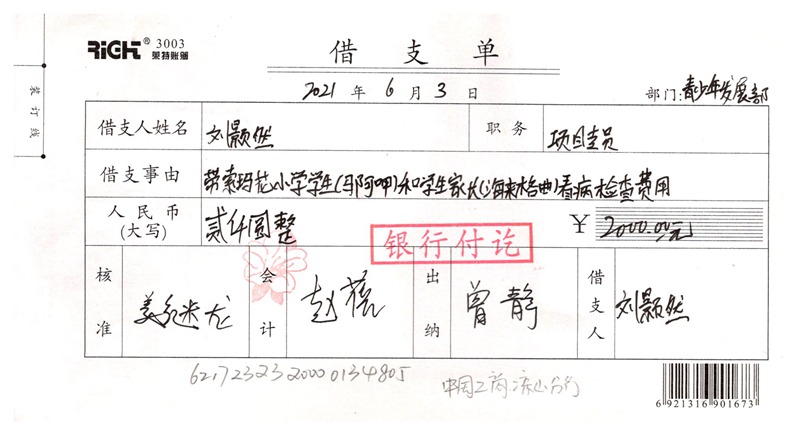 RiGHT® 3003
莱特账簿
借支单
2021 年 6 月 3 日
部门:青少年发展部
装订线
借支人姓名 刘颢然 职务 项目专员
借支事由 带索玛花小学学生(马阿呷)和学生家长(海来格曲)看病检查费用
人民币(大写) 贰仟圆整 ¥ 2000.00元
银行付讫
核准 会计 赵蓓 出纳 曾静 借支人 刘颢然
6217232320000134805 中国工商凉山分行
6 921316 901673